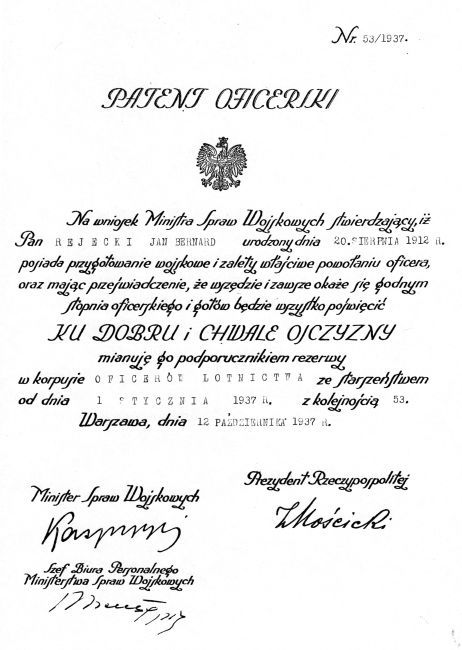 Nr. 53/1937.
PATENT OFICERSKI
Na wniosek Ministra Spraw Wojskowych stwierdzający, iż
Pan REJECKI JAN BERNARD urodzony dnia 20.SIERPNIA 1912 R.
posiada przygotowanie wojskowe i zalety właściwe powołaniu oficera,
oraz mając przeświadczenie, że wszędzie i zawsze okaże się godnym
stopnia oficerskiego i gotów będzie wszystko poświęcić
KU DOBRU i CHWALE OJCZYZNY
mianuję go podporucznikiem rezerwy
w korpusie OFICERÓW LOTNICTWA ze starszeństwem
od dnia 1 STYCZNIA 1937 R. z kolejnością 53.
Warszawa, dnia 12 PAŹDZIERNIKA 1937 R.
Prezydent Rzeczypospolitej
Minister Spraw Wojskowych
IMościcki
Kasprzycki
Szef Biura Personalnego
Ministerstwa Spraw Wojskowych